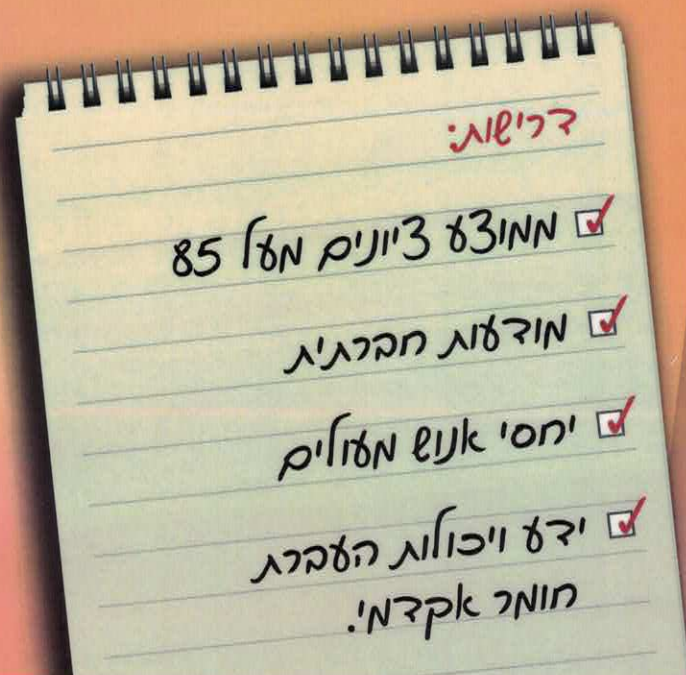 דרישות:
ממוצע ציונים מעל 85
מודעות חברתית
יחסי אנוש מעולים
ידע ויכולות העברת
חומר אקדמי.